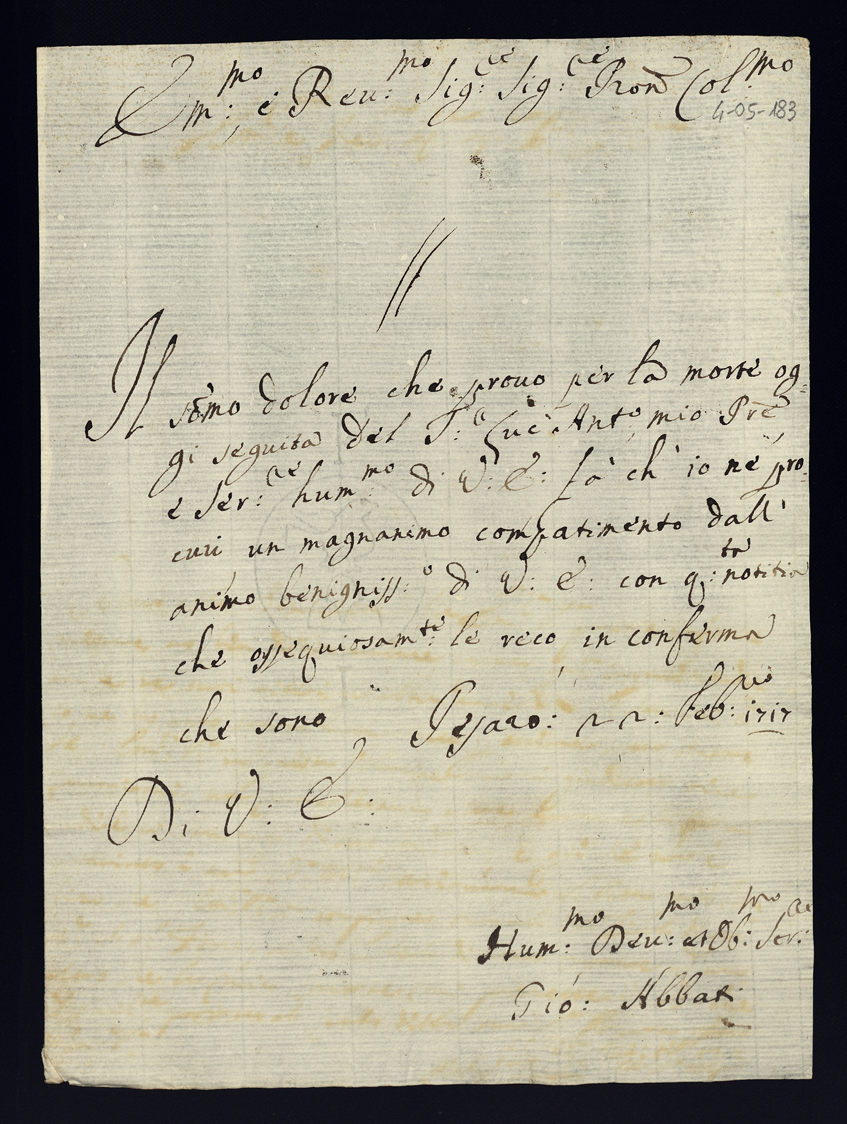 Em:mo e Reu:mo Sig:re Sig:re Pron Col:mo
4-05-183
Il sōmo dolore che prouo per la morte og-
gi seguita del S:r Luc'Ant:o mio Prē
e Ser:re hum:mo di V: E: fà ch' io ne pro
curi un magnanimo compatimento dall'
animo beniniss:o di V: E: con q:ta notitia
che ossequiosam:te le reco in conferma
che sono Pesaro: 22: Feb:ro 1717
Di V: E:
Hum:mo Deu:mo et Ob:mo Ser:re
Gio: Abbati